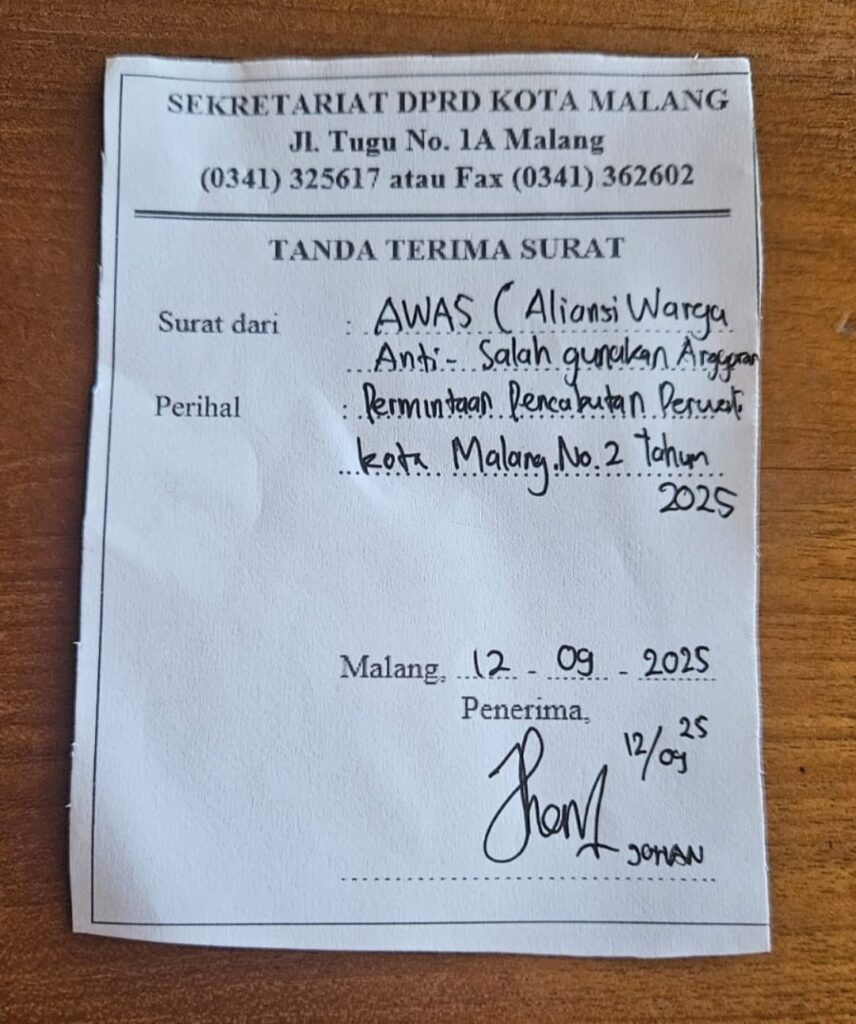 SEKRETARIAT DPRD KOTA MALANG
Jl. Tugu No. 1A Malang
(0341) 325617 atau Fax (0341) 362602
TANDA TERIMA SURAT
Surat dari : AWAS (Aliansi Warga
Anti- Salah gunakan Anggaran
Perihal : Permintaan Pencabutan Perwal
kota Malang No. 2 tahun
2025
Malang, 12 - 09 - 2025
Penerima,
12/09 25
JOHAN